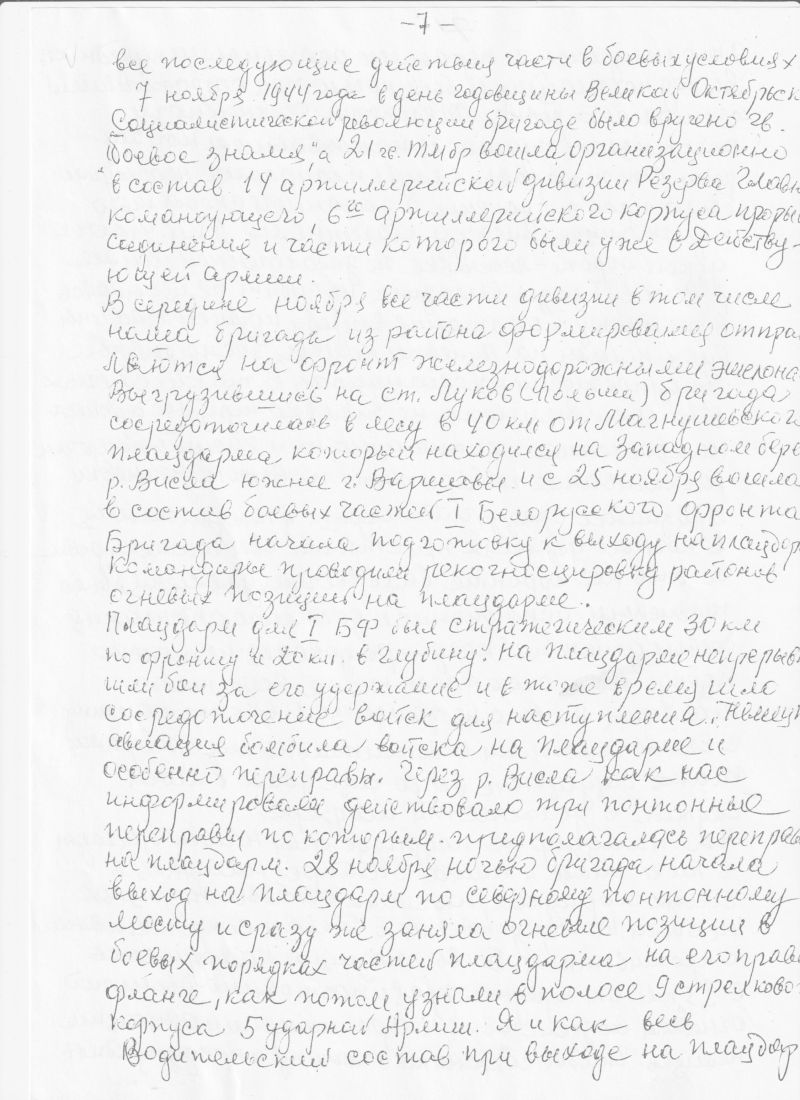 -7-
все последующие действия части в боевых условиях
7 ноября 1944 года в день годовщины Великой Октябрьск
Социалистической революции бригаде было вручено гв.
"Боевое знамя", а 21 гв. тмбр вошла организационно
в состав 14 артиллерийской дивизии Резерва Главн
командующего, 6го артиллерийского корпуса прорыв
соединения и части которого были уже в Действу-
ющей армии.
В середине ноября все части дивизии в том числе
наша бригада из района формирования отправ
ляются на фронт железнодорожными эшелона
Выгрузившись на ст. Луков (Польша) бригада
сосредоточилась в лесу в 40 км от Магнушевского
плацдарма который находился на Западном бере
р. Висла южнее г. Варшавы и с 25 ноября вошла
в состав боевых частей I Белорусского фронта
Бригада начала подготовку к выходу на плацдар
Командиры проводили рекогносцировку районов
огневых позиций на плацдарме.
Плацдарм для I БФ был стратегическим 30 км
по фронту и 20 км. в глубину. На плацдарме непрерыв
шли бои за его удержание и в тоже время шло
сосредоточение войск для наступления. Немецк
авиация бомбила войска на плацдарме и
особенно переправы. Через р. Висла как нас
информировали действовало три понтонные
переправы по которым предполагалось переправ
на плацдарм. 28 ноября ночью бригада начала
выход на плацдарм по северному понтонному
мосту и сразу же заняла огневые позиции в
боевых порядках частей плацдарма на его право
фланге, как потом узнали в полосе 9 стрелково
корпуса 5 ударной Армии. Я и как весь
Водительский состав при выходе на плацдар